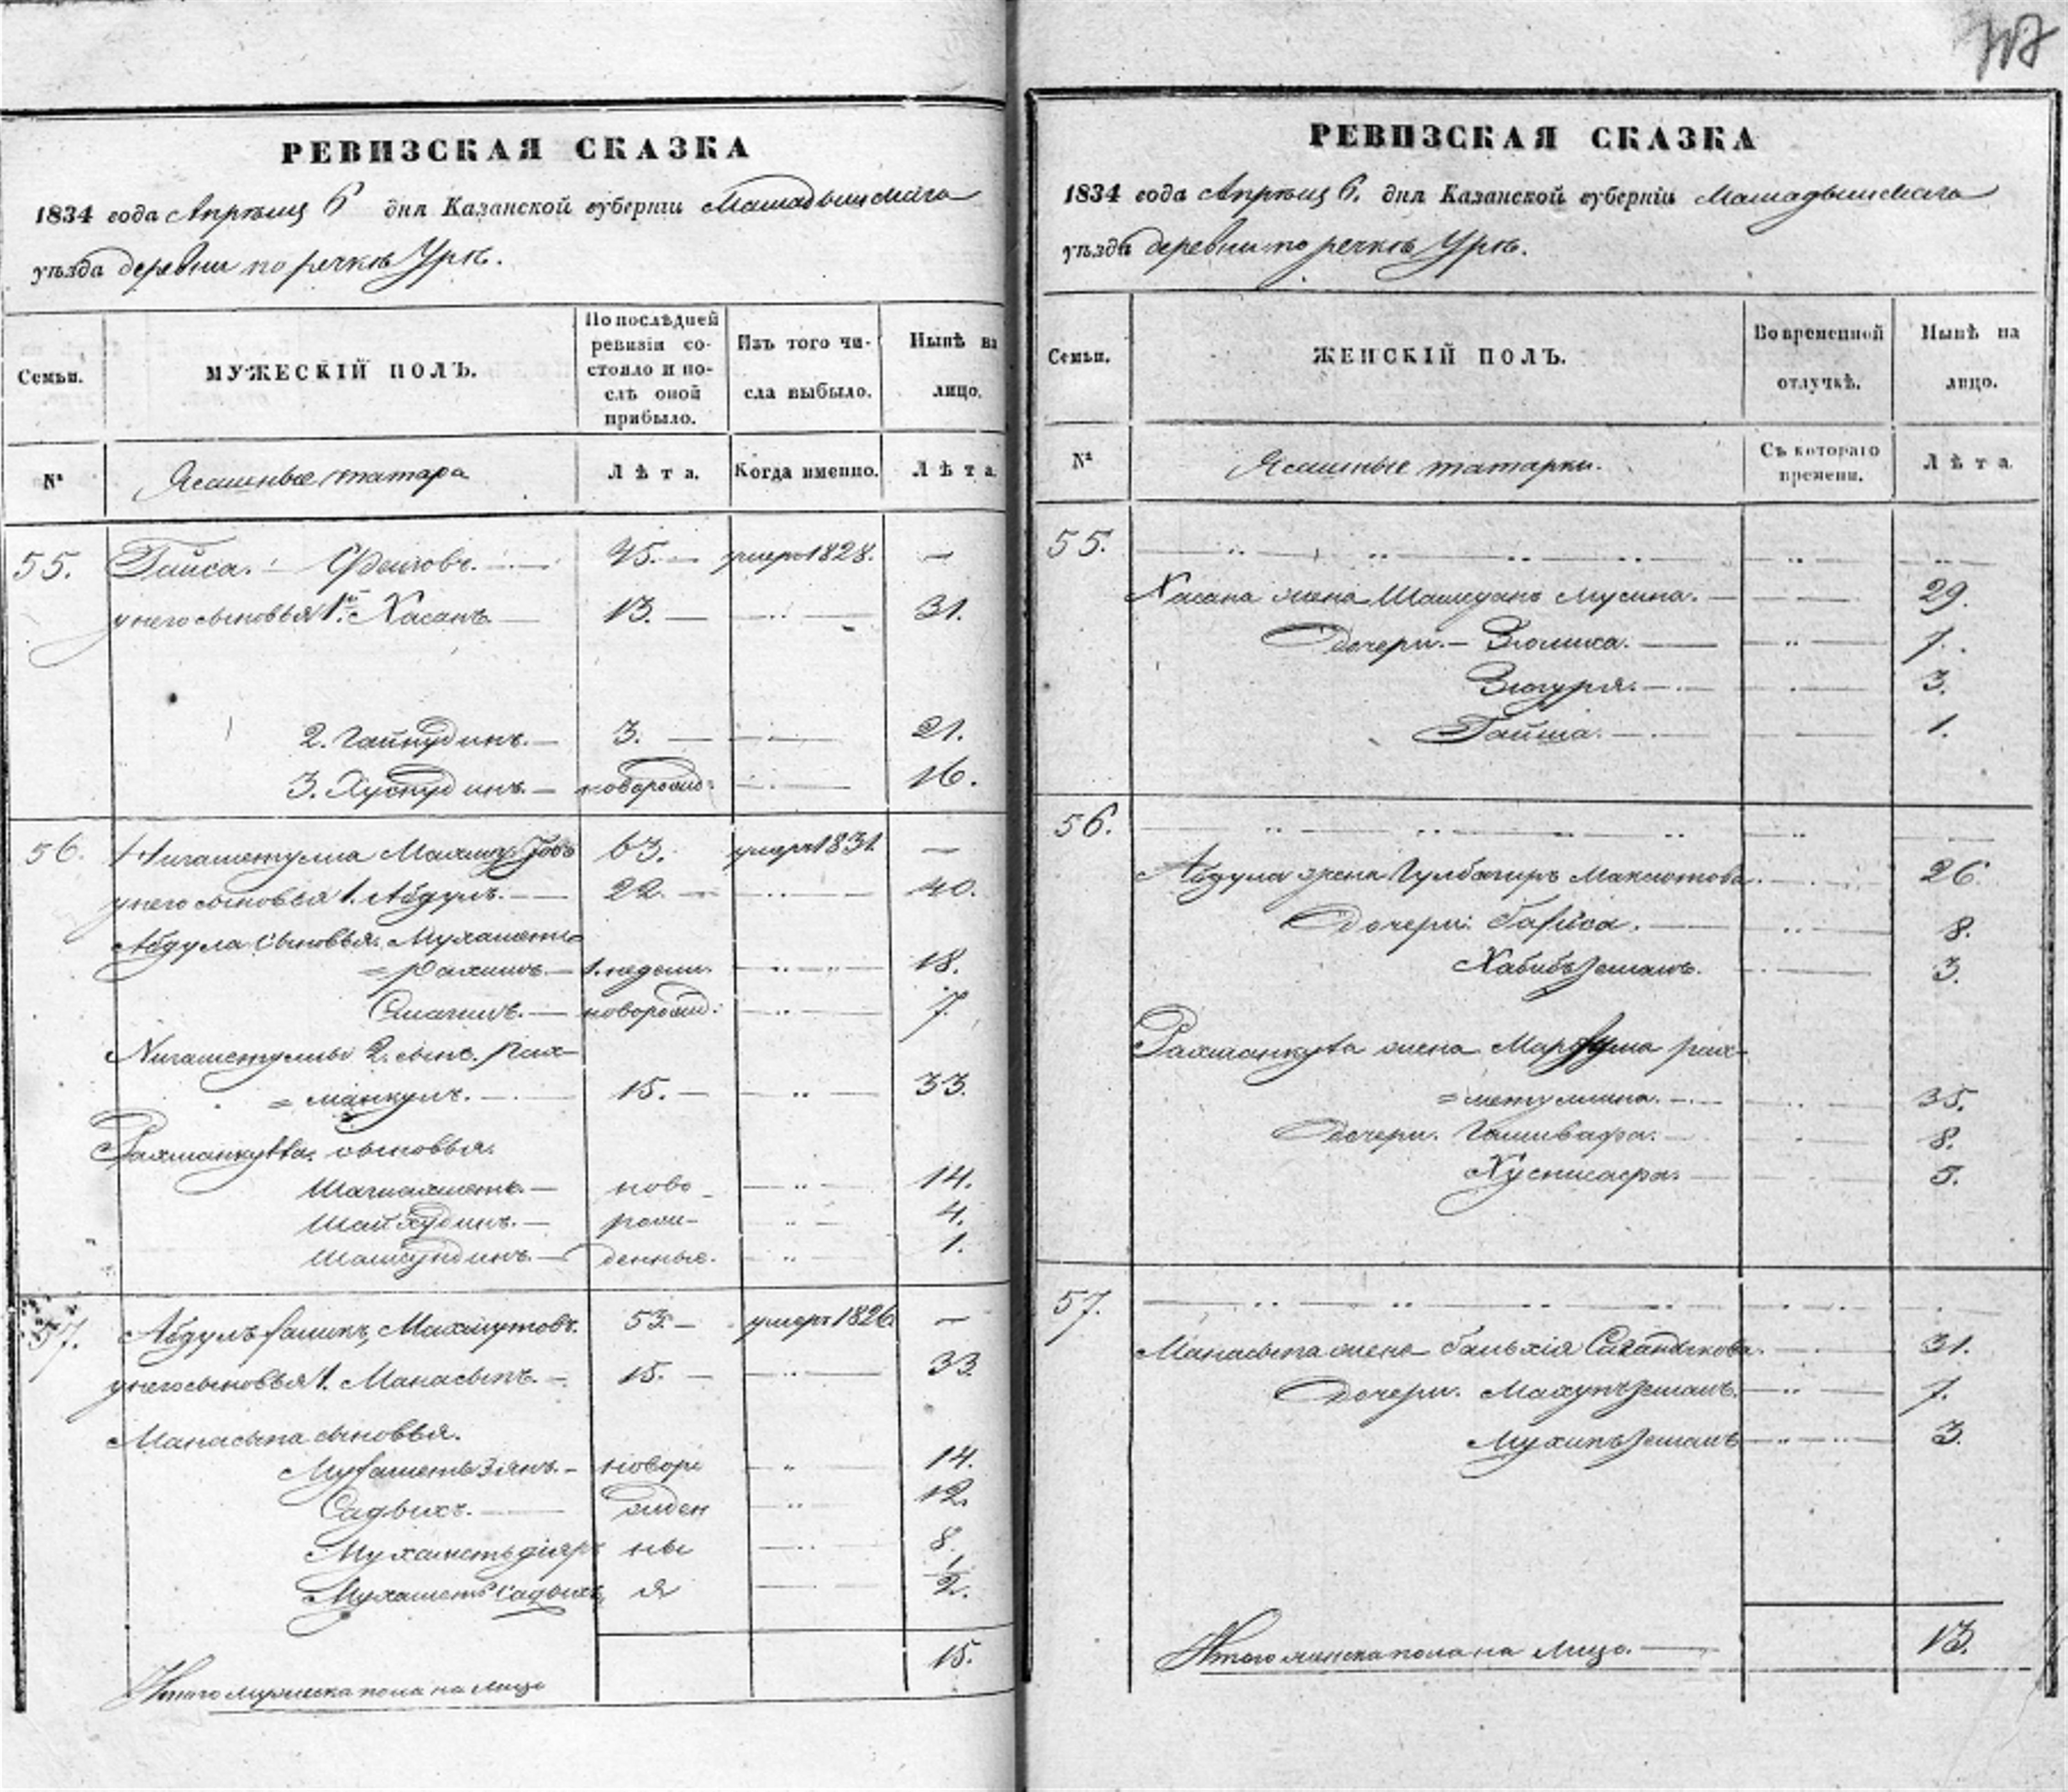 РЕВИЗСКАЯ СКАЗКА
1834 года Апрѣля 6 дня Казанской губерніи Мамадышскаго
уѣзда деревни по речкѣ Урѣ.
Семьи. МУЖЕСКІЙ ПОЛЪ. По послѣдней ревизіи состояло и послѣ оной прибыло. Изъ того числа выбыло. Нынѣ на лицо.
№ Ясашные татара Лѣта. Когда именно. Лѣта.
55. Гайса Фейзовъ. 45. умеръ 1828. —
у него сыновья 1й Хасанъ 13. 31.
2. Гайнудинъ. 3. 21.
3. Хуснудинъ. новорожд: 16.
56. Нигаметулла Махмутовъ 63. умеръ 1831. —
у него сыновья 1. Абдулъ. 22. 40.
Абдула сыновья. Мухаметъ
= рахимъ. 1. недели. 18.
новорожд: 7.
Нигаметуллы 2. сынъ. Рах-
= манкулъ. 15. 33.
Рахманкула. сыновья.
Шагиахметъ. ново 14.
Шайхудинъ. рож- 4.
Шамсундинъ. денные. 1.
57. Абдулъ Махмутовъ. 53. умеръ 1826. —
у него сыновья 1. Манасыпъ. 15. 33.
Манасыпа сыновья.
Мухаметь Зянъ. новоро 14.
Садыкъ. жден 12.
Мухаметь дiяръ ны 8.
Мухаметь садыкъ я 1/2.
Итого мужеска пола на лицо 15.
РЕВИЗСКАЯ СКАЗКА
1834 года Апрѣля 6. дня Казанской губерніи Мамадышскаго
уѣзда деревни по речкѣ Урѣ.
Семьи. ЖЕНСКІЙ ПОЛЪ. Во временной отлучкѣ. Нынѣ на лицо.
№ Ясашные татарки. Съ котораго времени. Лѣта.
55.
Хасана жена Мусина. 29.
Дочери. Зюлиха. 7.
Зюгуря. 3.
Гайша. 1.
56.
Абдула жена Гулбагиръ Максютова. 26.
Дочери: Гафиса. 8.
Хабибъ Земалъ. 3.
Рахманкула жена рах-
= метуллина. 35.
Дочери. 8.
5.
57.
Манасыпа жена 31.
Дочери. 7.
3.
Итого женска пола на лицо. 13.